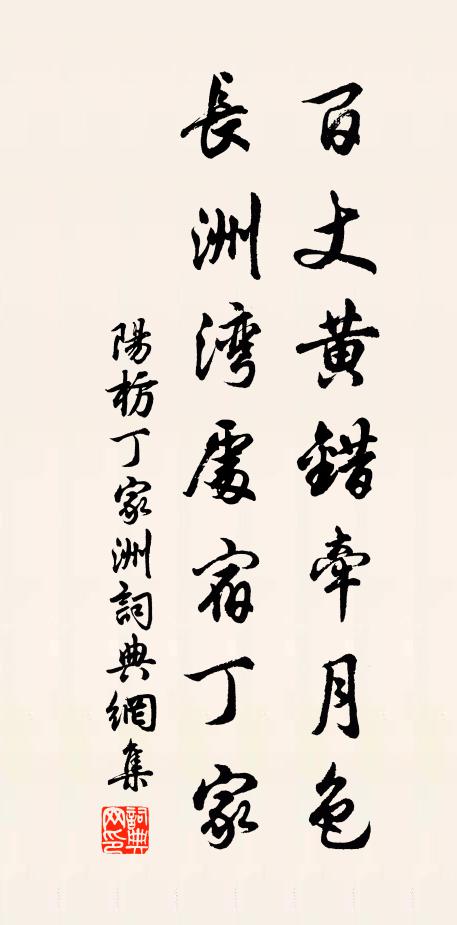 百丈黄錯牽月色
長洲湾處宿丁家
陽枋丁家洲詞典網集
詞典網印